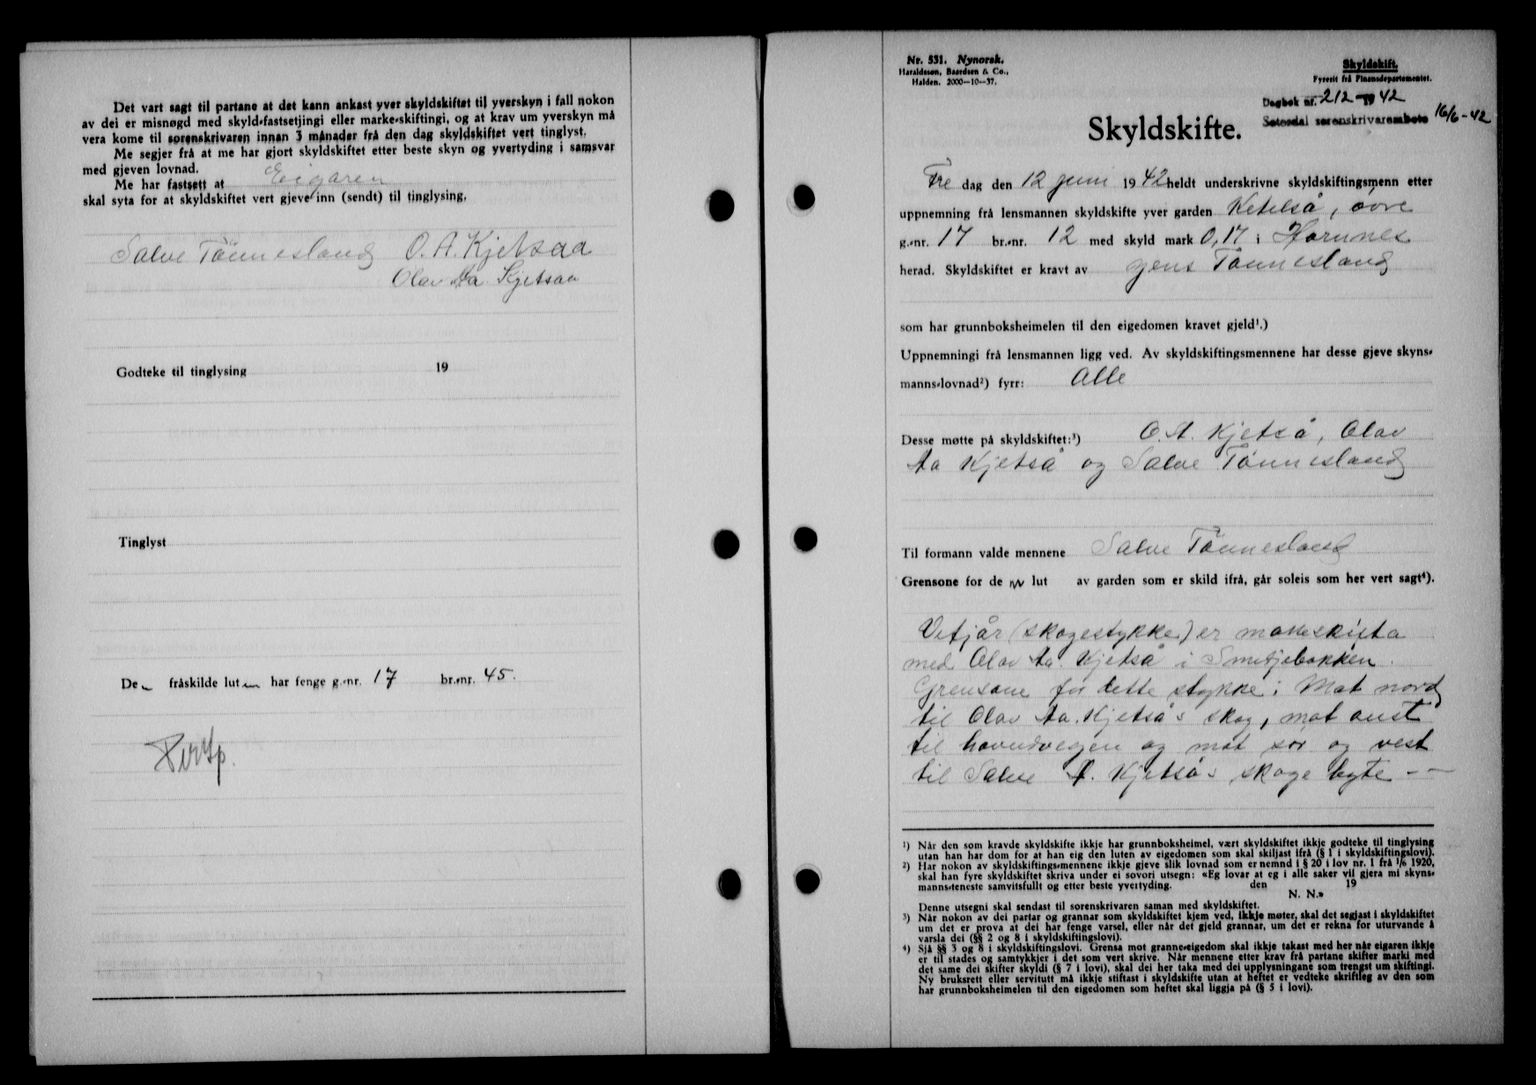 Det vart sagt til partane at det kann ankast yver skyldskiftet til yverskyn i fall nokon
av dei er misnøgd med skyld-fastsetjingi eller marke-skiftingi, og at krav um yverskyn må
vera kome til sorenskrivaren innan 3 månader frå den dag skyldskiftet vert tinglyst.
Me segjer frå at me har gjort skyldskiftet etter beste skyn og yvertyding i samsvar
med gjeven lovnad.
Me har fastsett at Eigaren
skal syta for at skyldskiftet vert gjeve inn (sendt) til tinglysing.
Salve Tönnesland O. A. Kjetsaa
Olav Aa. Kjetsaa
Godteke til tinglysing 19
Tinglyst
De fråskilde lut har fenge g.-nr. 17 br.-nr. 45.
Nr. 531. Nynorsk.
Haraldssøn, Baardsen & Co.,
Halden. 2000—10—37.
Skyldskift.
Fyresit frå Finansdepartementet.
Dagbok nr. 212 - 1942
Setesdal sorenskrivarembete 16/6-42
Skyldskifte.
Fre dag den 12 juni 1942 heldt underskrivne skyldskiftingsmenn etter
uppnemning frå lensmannen skyldskifte yver garden Ketelså, øvre
g.-nr. 17 br.-nr. 12 med skyld mark 0,17 i Hornnes
herad. Skyldskiftet er kravt av Jens Tönnesland
som har grunnboksheimelen til den eigedomen kravet gjeld¹.)
Uppnemningi frå lensmannen ligg ved. Av skyldskiftingsmennene har desse gjeve skyns-
manns-lovnad²) fyrr: Alle
Desse møtte på skyldskiftet:³) O. A. Kjetså, Olav
Aa Kjetså og Salve Tönnesland
Til formann valde mennene Salve Tönnesland
Grensone for de lut av garden som er skild ifrå, går soleis som her vert sagt⁴).
Vetjår (skogestykke) er makeskifta
med Olav Aa. Kjetså i Smetjebakken.
Grensone for dette stykke: Mot nord
til Olav Aa. Kjetså's skog, mot aust
til hovudvegen og mot sør og vest
til Salve A. Kjetså's skoge byte --
¹) Når den som kravde skyldskifte ikkje har grunnboksheimel, vært skyldskiftet ikkje godteke til tinglysing
utan han har dom for at han eig den luten av eigedomen som skal skiljast ifrå (§ 1 i skyldskiftingslovi).
²) Har nokon av skyldskiftings-mennene ikkje gjeve slik lovnad som er nemnd i § 20 i lov nr. 1 frå 1/6 1920,
skal han fyre skyldskiftet skriva under ei sovori utsegn: «Eg lovar at eg i alle saker vil gjera mi skyns-
manns-teneste samvitsfullt og etter beste yvertyding. den 19
N. N.»
Denne utsegni skal sendast til sorenskrivaren saman med skyldskiftet.
³) Når nokon av dei partar og grannar som skyldskiftet kjem ved, ikkje møter, skal det segjast i skyldskiftet
um det er prova at dei har fenge varsel, eller når det gjeld grannar, um det er rekna for uturvande å
varsla dei (§§ 2 og 8 i skyldskiftingslovi).
⁴) Sjå §§ 3 og 8 i skyldskiftingslovi. Grensa mot granne-eigedom skal ikkje takast med her når eigaren ikkje
er til stades og samtykkjer i det som vert skrive. Når mennene etter krav frå partane skifter marki med
det same dei skifter skyldi (§ 7 i lovi), skal dei her taka med dei upplysningane som trengst um skiftingi.
Ny bruksrett eller servitutt må ikkje stiftast i skyldskifte utan at heftet er vedteke skriftleg av den som
har grunnboksheimelen til den eigedomen som heftet skal liggja på (§ 5 i lovi).